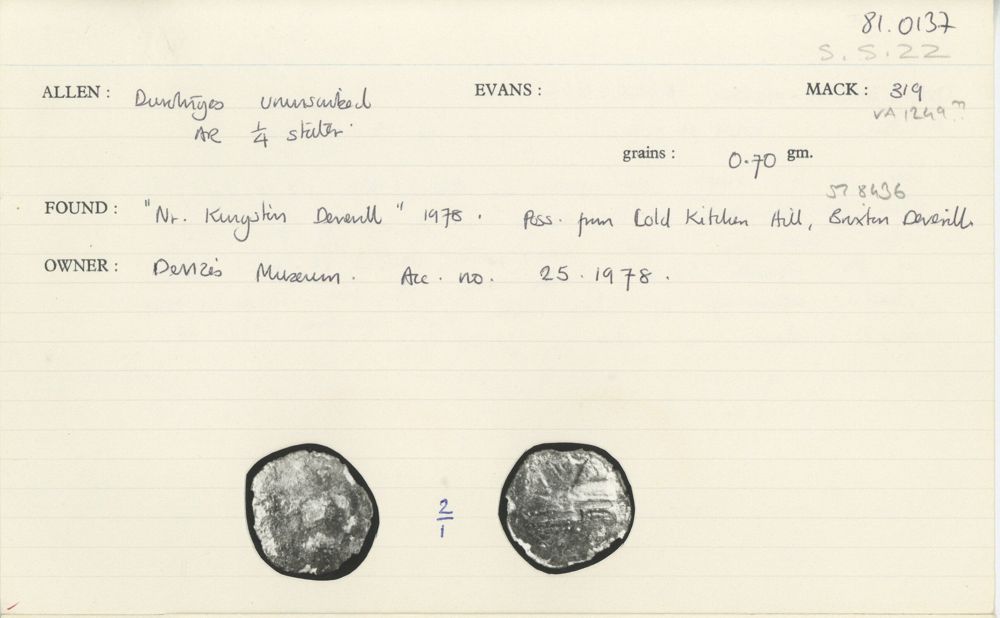 81.0137
S. S. 22
ALLEN : Durotriges uninscribed EVANS : MACK : 319
VA 1249 ??
AR 1/4 stater.
grains : 0.70 gm.
ST 8436
FOUND : "Nr. Kingston Deverill" 1978. Poss. from Cold Kitchen Hill, Brixton Deverill.
OWNER : Devizes Museum. Acc. no. 25.1978.
2/1